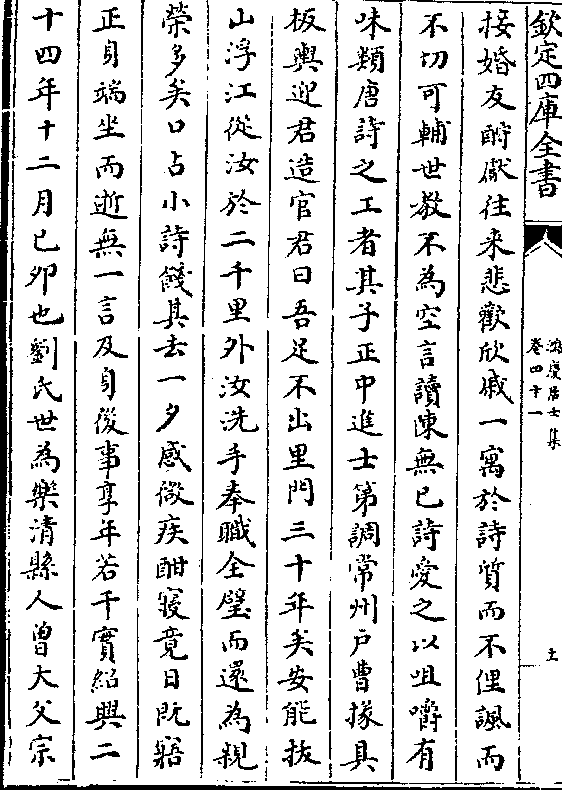 欽定四庫全書
鴻慶居士集
卷四十一
十
接婚友酧獻往来悲歡欣戚一寓於詩質而不俚諷而
不切可輔世教不為空言讀陳無已詩愛之以咀嚼有
味類唐詩之工者其子正中進士第調常州戶曹掾具
板輿迎君造官君曰吾足不出里門三十年矣安能拔
山浮江從汝於二千里外汝洗手奉職全璧而還為親
榮多矣口占小詩餞其去一夕感微疾酣寝竟日既寤
正身端坐而逝無一言及身後事享年若干實紹興二
十四年十二月已夘也劉氏世為樂清縣人曽大父宗